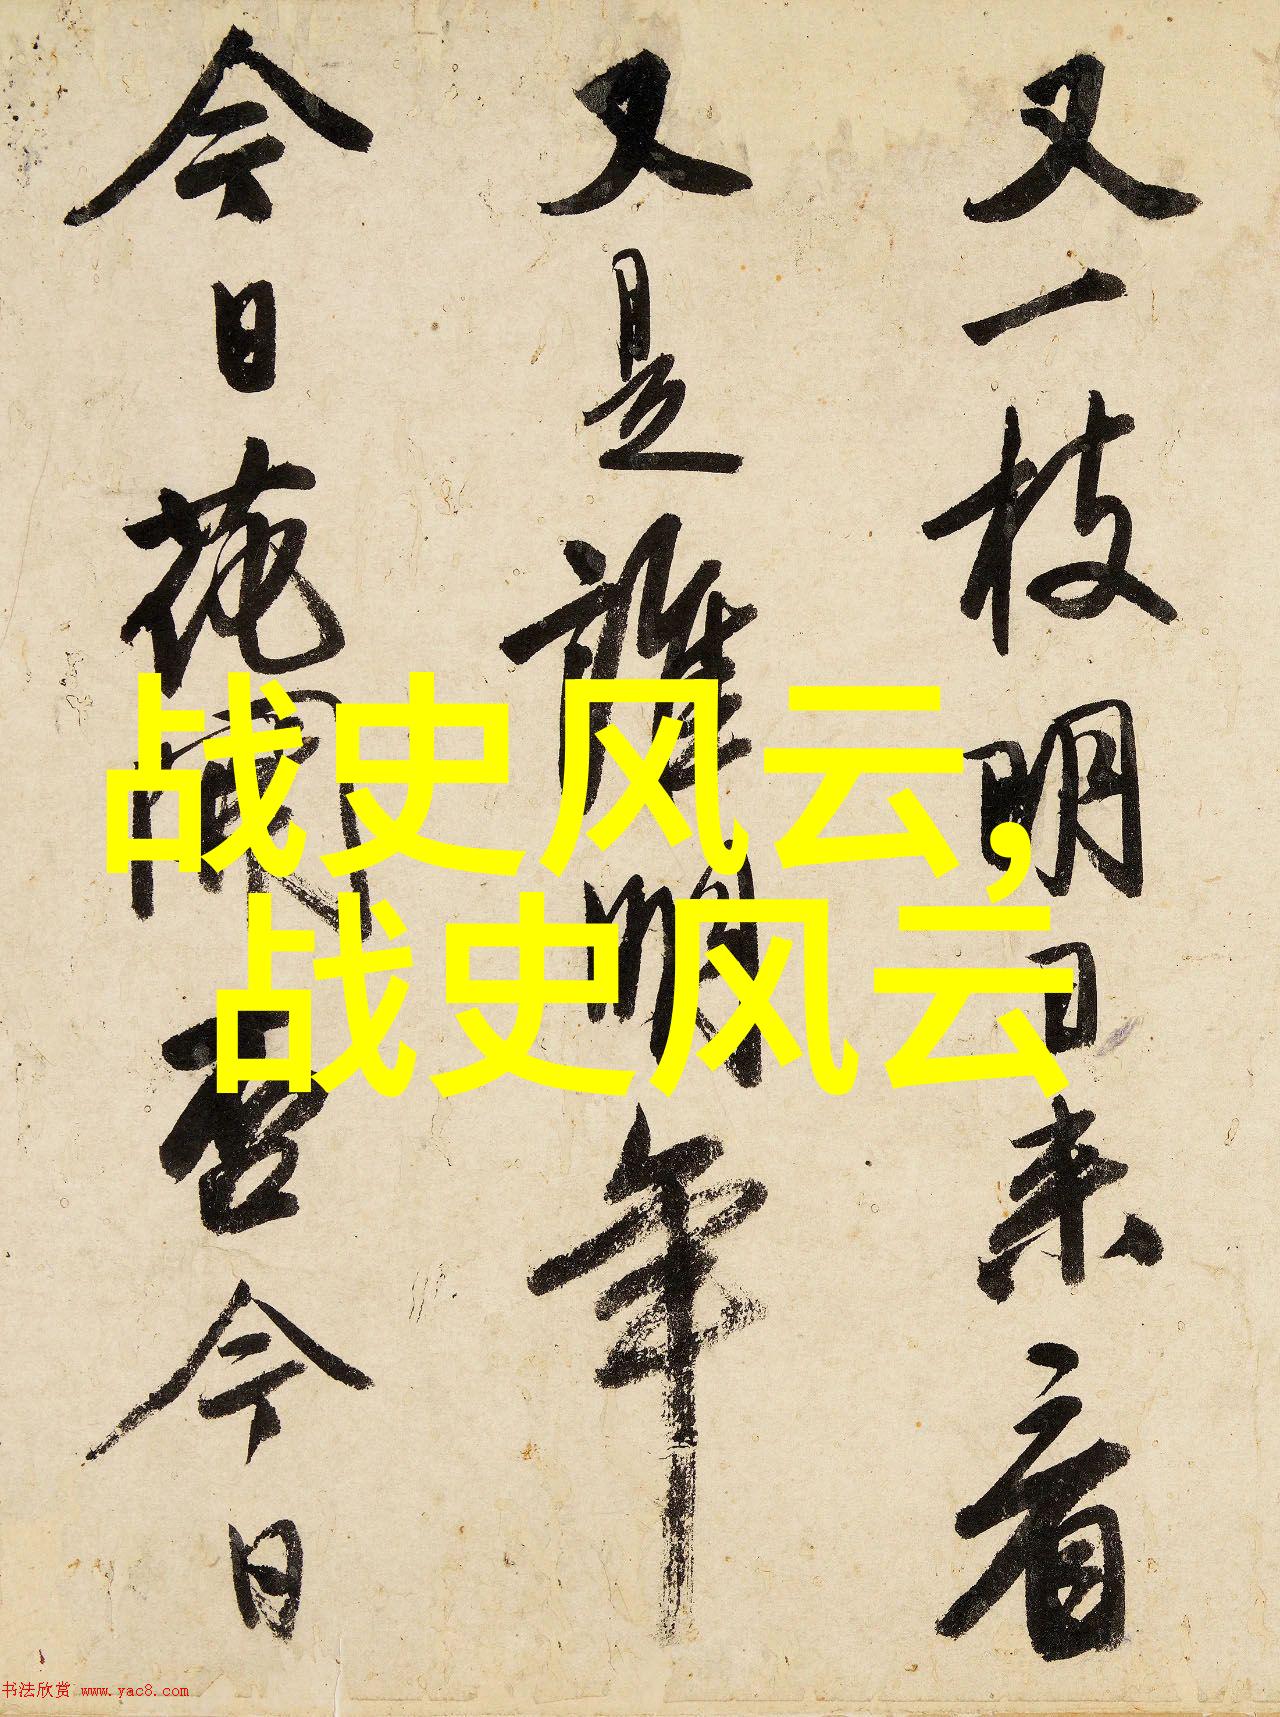 又一枝明日来看
又是誰明年
今日花開否今日
战史风云,
战史风云
书法欣赏 www.yac8.com